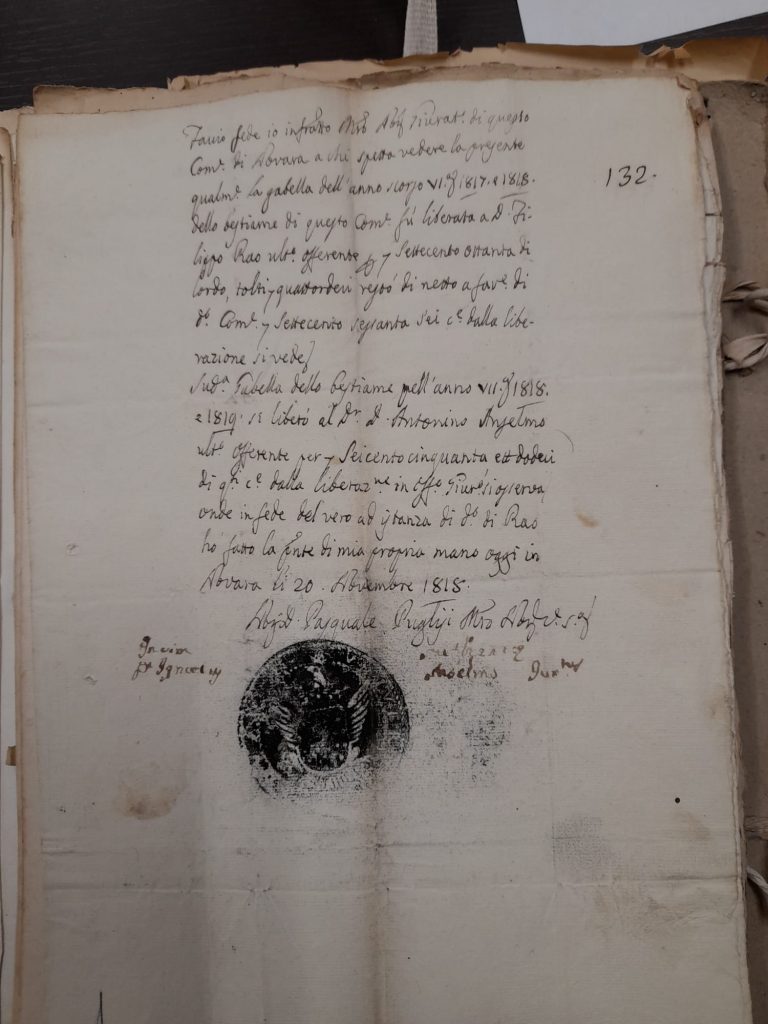 Faccio fede io infratto Mro Not. Giurat.° di questo
Com.e di Novara a chi spetta vedere la presente
132.
qualm.e la gabella dell'anno scorso VI. 1817. e 1818.
dello bestiame di questo Com.e fù liberata a D. Fi-
lippo Rao ult.° offerente Settecento ottanta di
lordo, tolti quattordeci restò di netto a fav.e di
d.° Com.e Settecento sessanta sei c.e dalla libe-
razione si vede
Sud.a Gabella dello bestiame nell'anno VII. 1818.
e 1819. si liberò al Dr. D. Antonino Anselmo
ult.° offerente per Seicento cinquanta dodeci
di q.ti c.e dalla liberaz.ne in Off.° Giur. si osserva
onde in fede del vero ad istanza di d.° di Rao
hò fatto la pnte di mia propria mano oggi in
Novara li 20. Novembre 1818.
Pasquale Puglisi Mro Not.
Anselmo